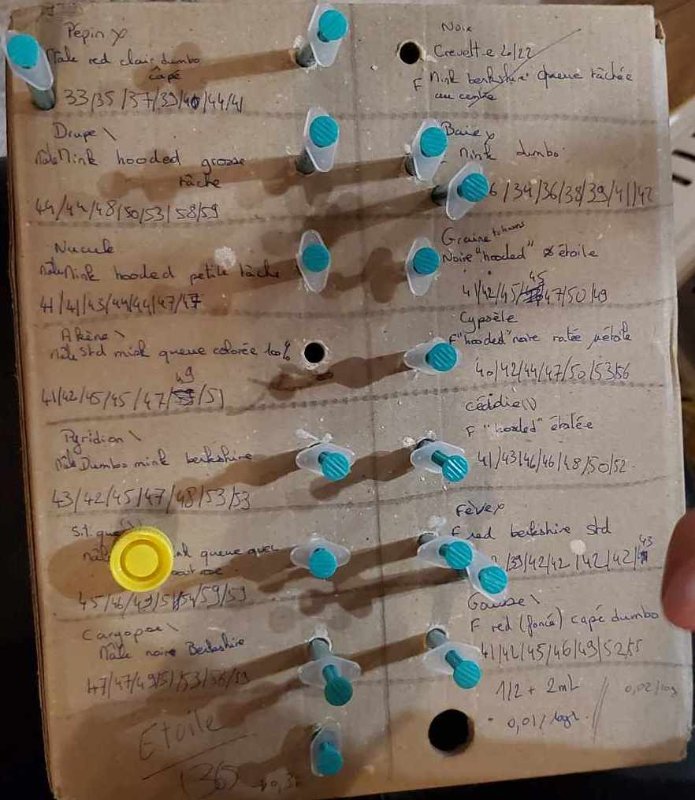 Pépin x
Male red clair dumbo
capé
33/35/37/39/40/44/41
Drupe \
Male Mink hooded grosse
tâche
44/44/48/50/53/58/59
Nucule
Male Mink hooded petite tâche
41/41/43/44/44/47/47
Akène \
Male Std mink queue colorée 100%
49
41/42/45/45/47/51
Pyridion \
Male Dumbo mink berkshire
43/42/45/47/48/53/53
S.t.
queue
45/46/49/51/54/59/59
Cargopse \
Male noire Berkshire
47/47/49/51/53/56/59
Etoile
136
Noix
Crevette 20/22
F Mink berkshire queue tâchée
au centre
Baie x
Mink dumbo
6/34/36/38/39/41/42
Graine
Noire "hooded" étoile
45
41/42/45/47/50/49
Cypsèle
F "hooded" noire ratée étoile
40/42/44/47/50/53/56
Cécidie \
F "hooded" étoilée
41/43/46/46/48/50/52
Fève x
F red berkshire std
43
/39/42/42/42/42/
Gousse \
F red (foncé) capé dumbo
41/42/45/46/49/52/55
1/2 + 2mL
0,02/10g
- 0,01/10g